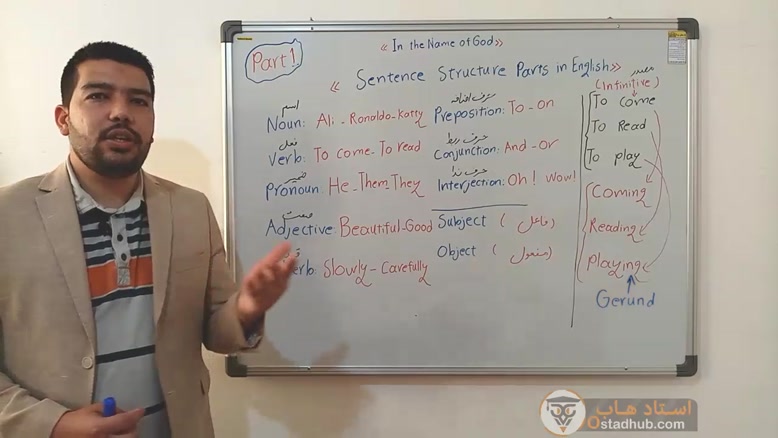 Part 1
« In the Name of God »
« Sentence Structure Parts in English »
اسم
Noun: Ali - Ronaldo - Katty
فعل
Verb: To come - To read
ضمیر
Pronoun: He - Them, They
صفت
Adjective: Beautiful - Good
erb: Slowly - Carefully
حرف اضافه
Preposition: To - on
حرف ربط
Conjunction: And - or
حرف ندا
Interjection: Oh! Wow!
Subject ( فاعل )
Object ( مفعول )
مصدر
(Infinitive)
To come
To Read
To play
Coming
Reading
Playing
Gerund
استاد هاب
Ostadhub.com